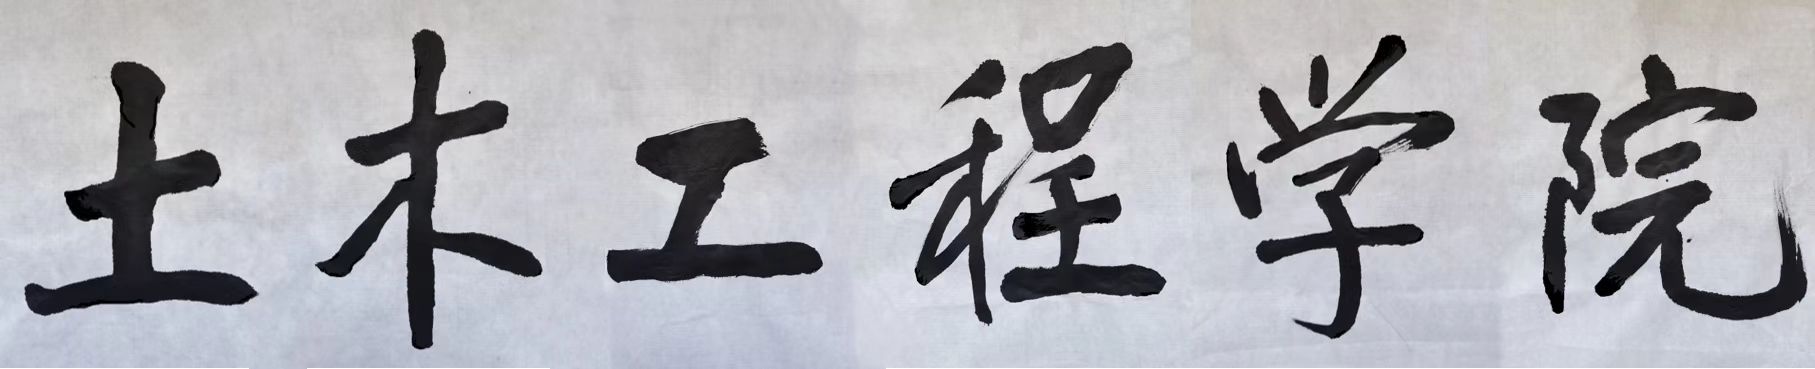 土木工程学院